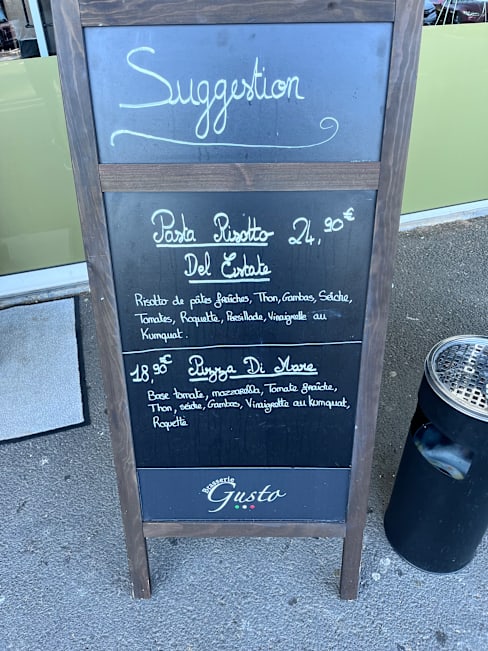 Suggestion
Pasta Risotto 24,90€
Del Estate
Risotto de pâtes fraîches, Thon, Gambas, Seiche,
Tomates, Roquette, Persillade, Vinaigrette au
Kumquat.
18,90€ Pizza Di Mare
Base tomate, mozzarella, Tomate fraîche,
Thon, seiche, Gambas, Vinaigrette au kumquat,
Roquette
Brasserie
Gusto